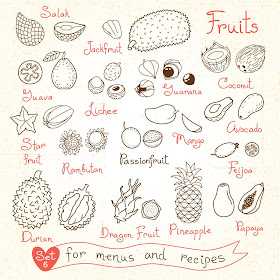 Salak
Jackfruit
Fruits
Guava
Lichee
Guarana
Coconut
Star
fruit
Rambutan
Passionfruit
Mango
Avocado
Feijoa
Durian
Dragon Fruit
Pineapple
Papaya
Set
6
for menus and recipes